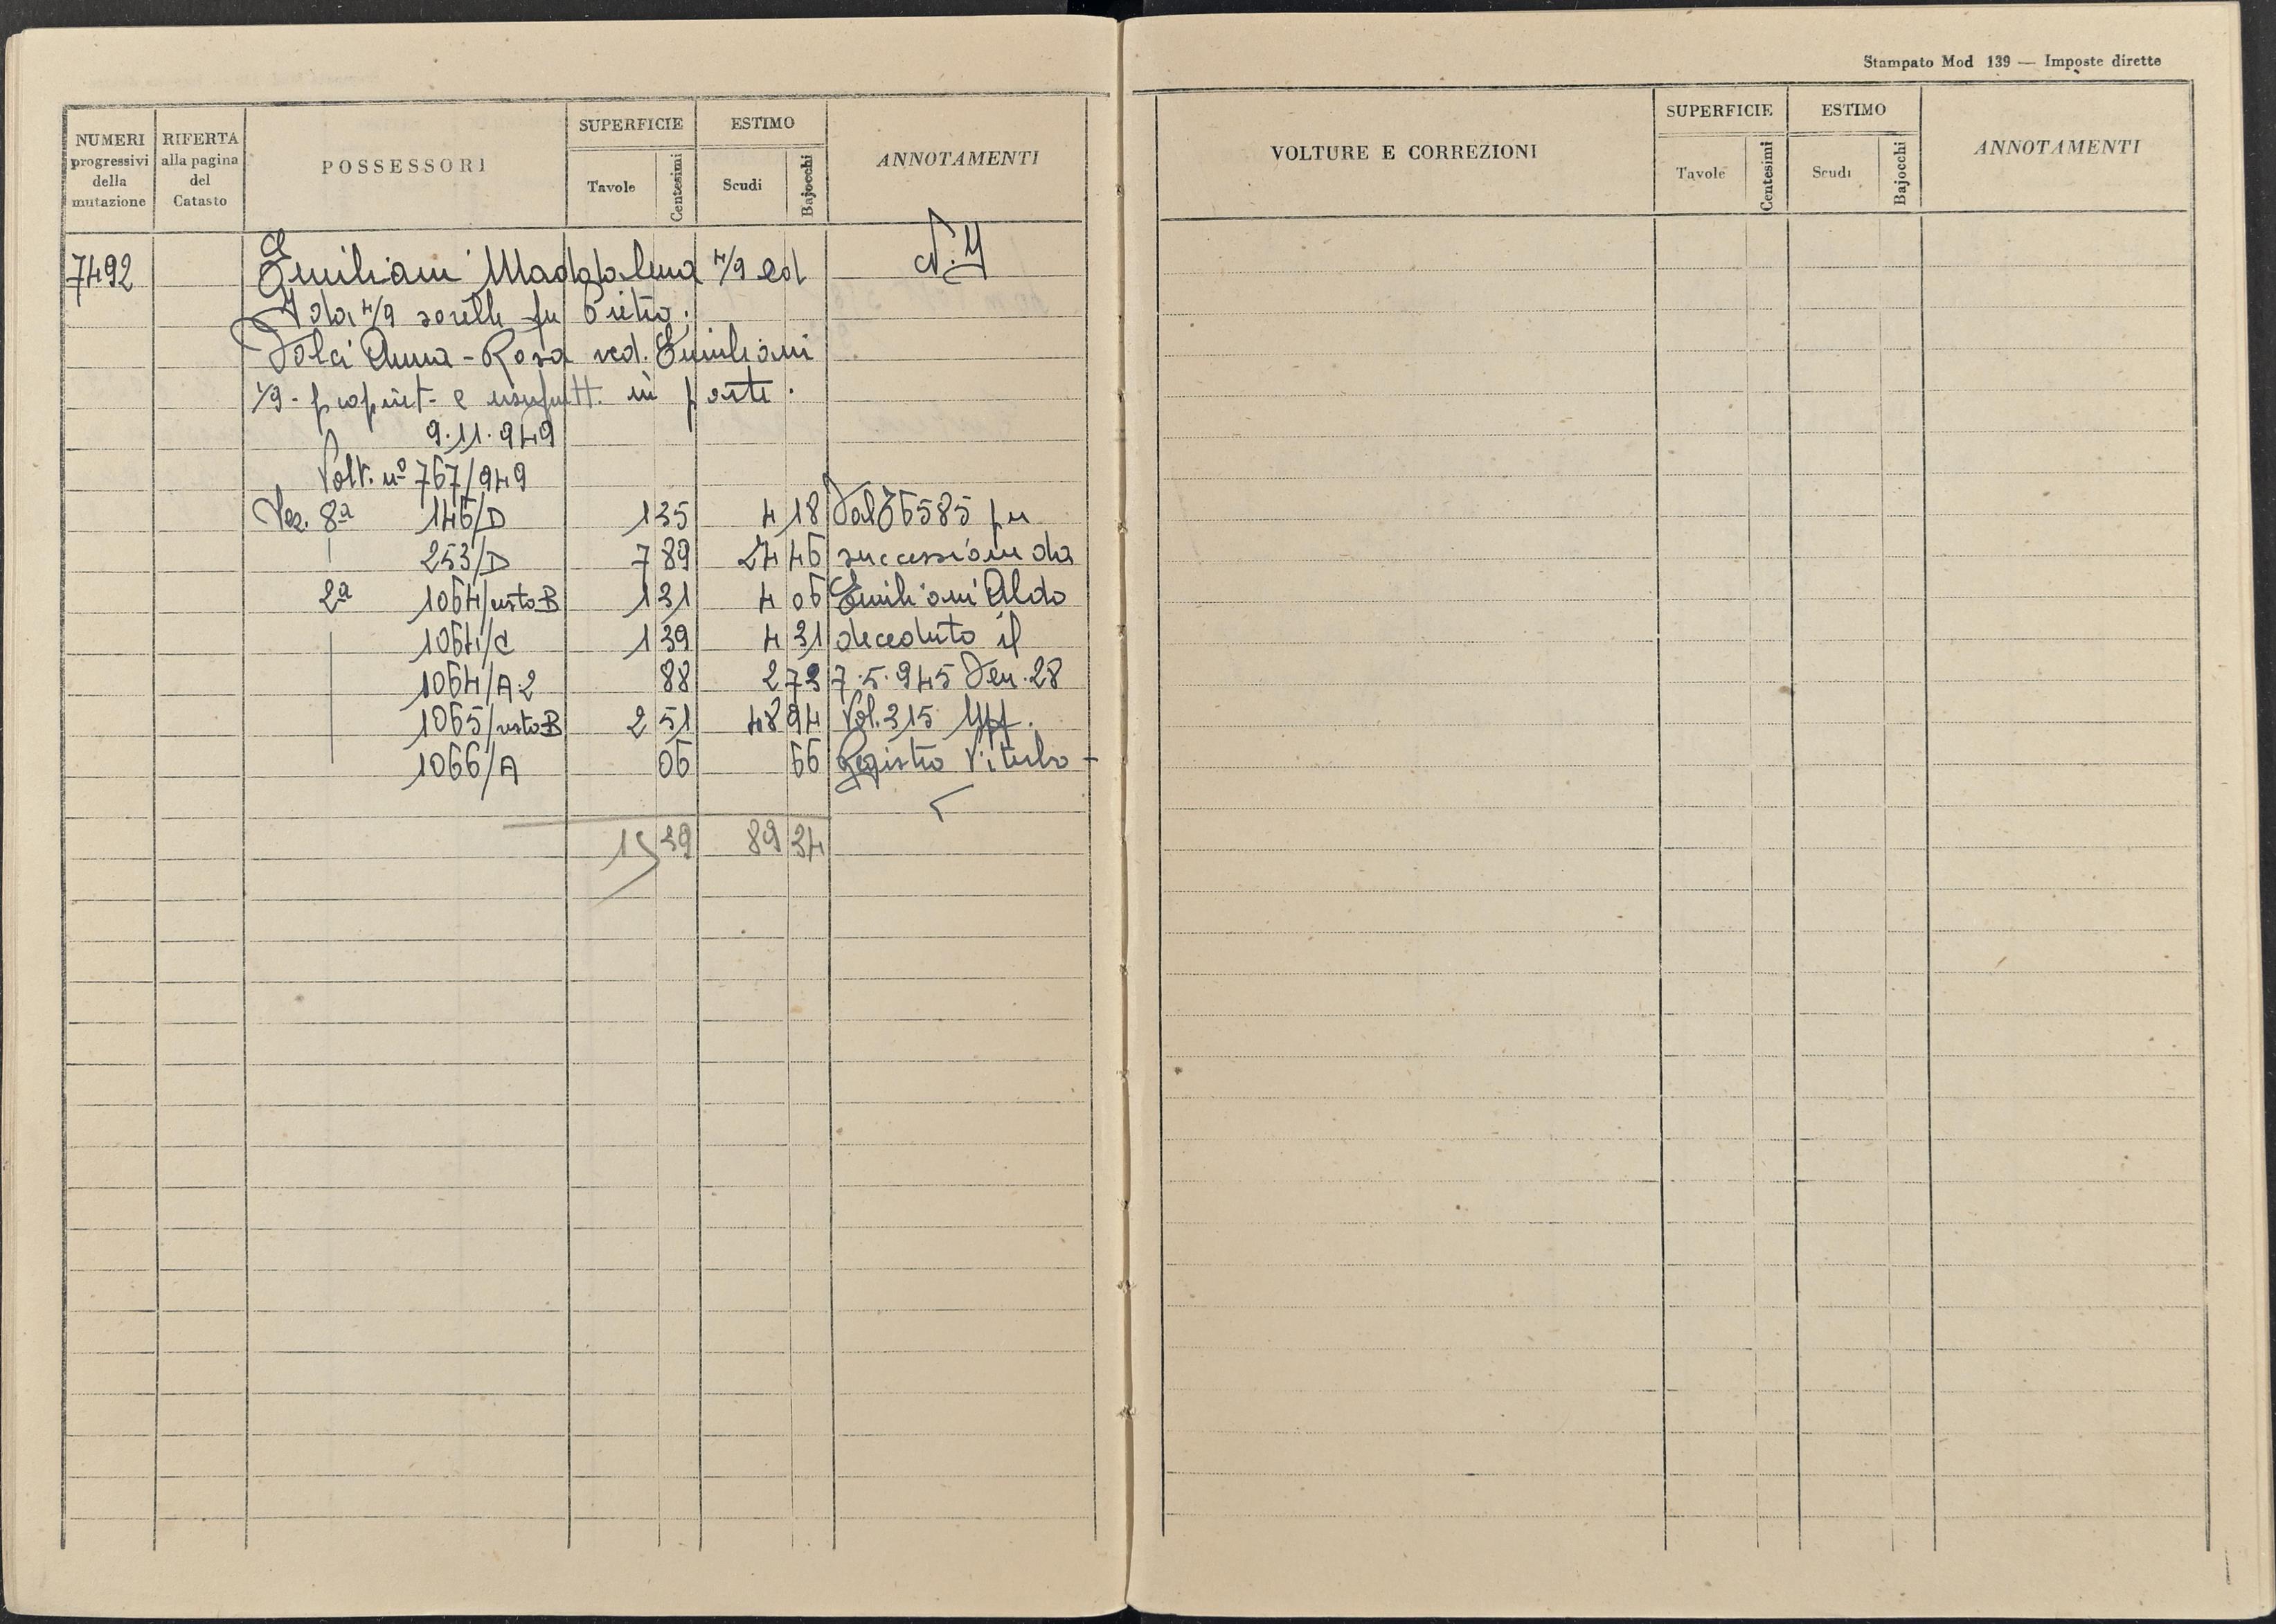 Stampato Mod 139 — Imposte dirette
NUMERI progressivi della mutazione
RIFERTA alla pagina del Catasto
POSSESSORI
SUPERFICIE
Tavole
Centesimi
ESTIMO
Scudi
Bajocchi
ANNOTAMENTI
VOLTURE E CORREZIONI
SUPERFICIE
Tavole
Centesimi
ESTIMO
Scudi
Bajocchi
ANNOTAMENTI
7492 Emiliani Maddalena 4/9 ed
Ada 4/9 sorelle fu Pietro.
Dolci Anna-Rosa ved. Emiliani
1/9 - propriet- e usufrutt. in parte.
9.11.949
Volt. nº 767/949
Sez. 8ª 146/D 1 35 4 18 Dal 6585 per
253/D 7 89 24 46 successione da
2ª 1064/resto B 1 31 4 06 Emiliani Aldo
1064/C 1 39 4 31 deceduto il
1064/A.2 88 2 73 7.5.945 Den. 28
1065/resto B 2 51 48 94 Vol. 315 Uff.
1066/A 06 66 Registro Viterbo -
15 39 89 34